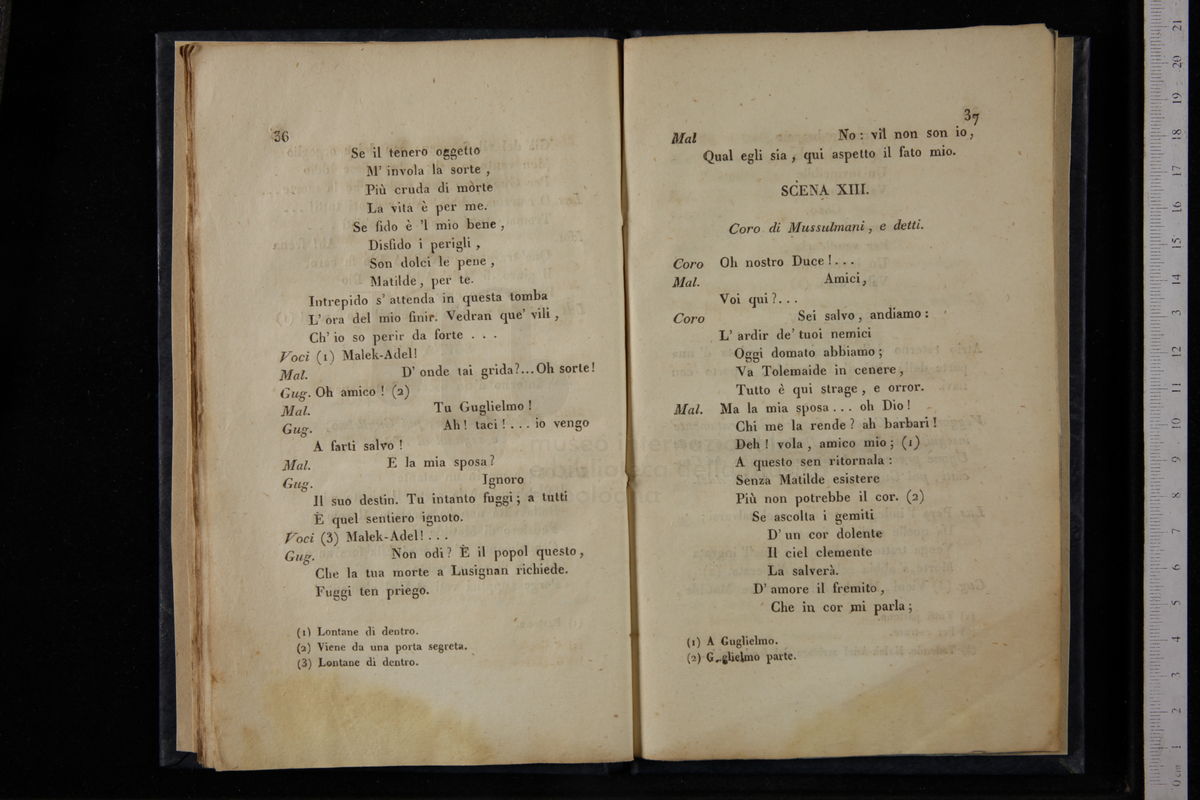 36
Se il tenero oggetto
M' invola la sorte ,
Più cruda di morte
La vita è per me.
Se fido è 'l mio bene ,
Disfido i perigli ,
Son dolci le pene ,
Matilde, per te.
Intrepido s' attenda in questa tomba
L' ora del mio finir. Vedran que' vili ,
Ch' io so perir da forte . . .
Voci (1) Malek-Adel!
Mal. D' onde tai grida?...Oh sorte!
Gug. Oh amico ! (2)
Mal. Tu Guglielmo !
Gug. Ah! taci! . . . io vengo
A farti salvo !
Mal. E la mia sposa?
Gug. Ignoro
Il suo destin. Tu intanto fuggi; a tutti
È quel sentiero ignoto.
Voci (3) Malek-Adel! . . .
Gug. Non odi? È il popol questo,
Che la tua morte a Lusignan richiede.
Fuggi ten priego.
(1) Lontane di dentro.
(2) Viene da una porta segreta.
(3) Lontane di dentro.
37
Mal No : vil non son io,
Qual egli sia , qui aspetto il fato mio.
SCENA XIII.
Coro di Mussulmani, e detti.
Coro Oh nostro Duce! . . .
Mal. Amici,
Voi qui? . . .
Coro Sei salvo, andiamo :
L' ardir de' tuoi nemici
Oggi domato abbiamo ;
Va Tolemaide in cenere,
Tutto è qui strage , e orror.
Mal. Ma la mia sposa . . . oh Dio !
Chi me la rende? ah barbari!
Deh ! vola , amico mio ; (1)
A questo sen ritornala :
Senza Matilde esistere
Più non potrebbe il cor. (2)
Se ascolta i gemiti
D' un cor dolente
Il ciel clemente
La salverà.
D' amore il fremito ,
Che in cor mi parla ;
(1) A Guglielmo.
(2) Guglielmo parte.
museo internazionale
e biblioteca della
bologna
0 cm 1 2 3 4 5 6 7 8 9 10 11 12 13 14 15 16 17 18 19 20 21